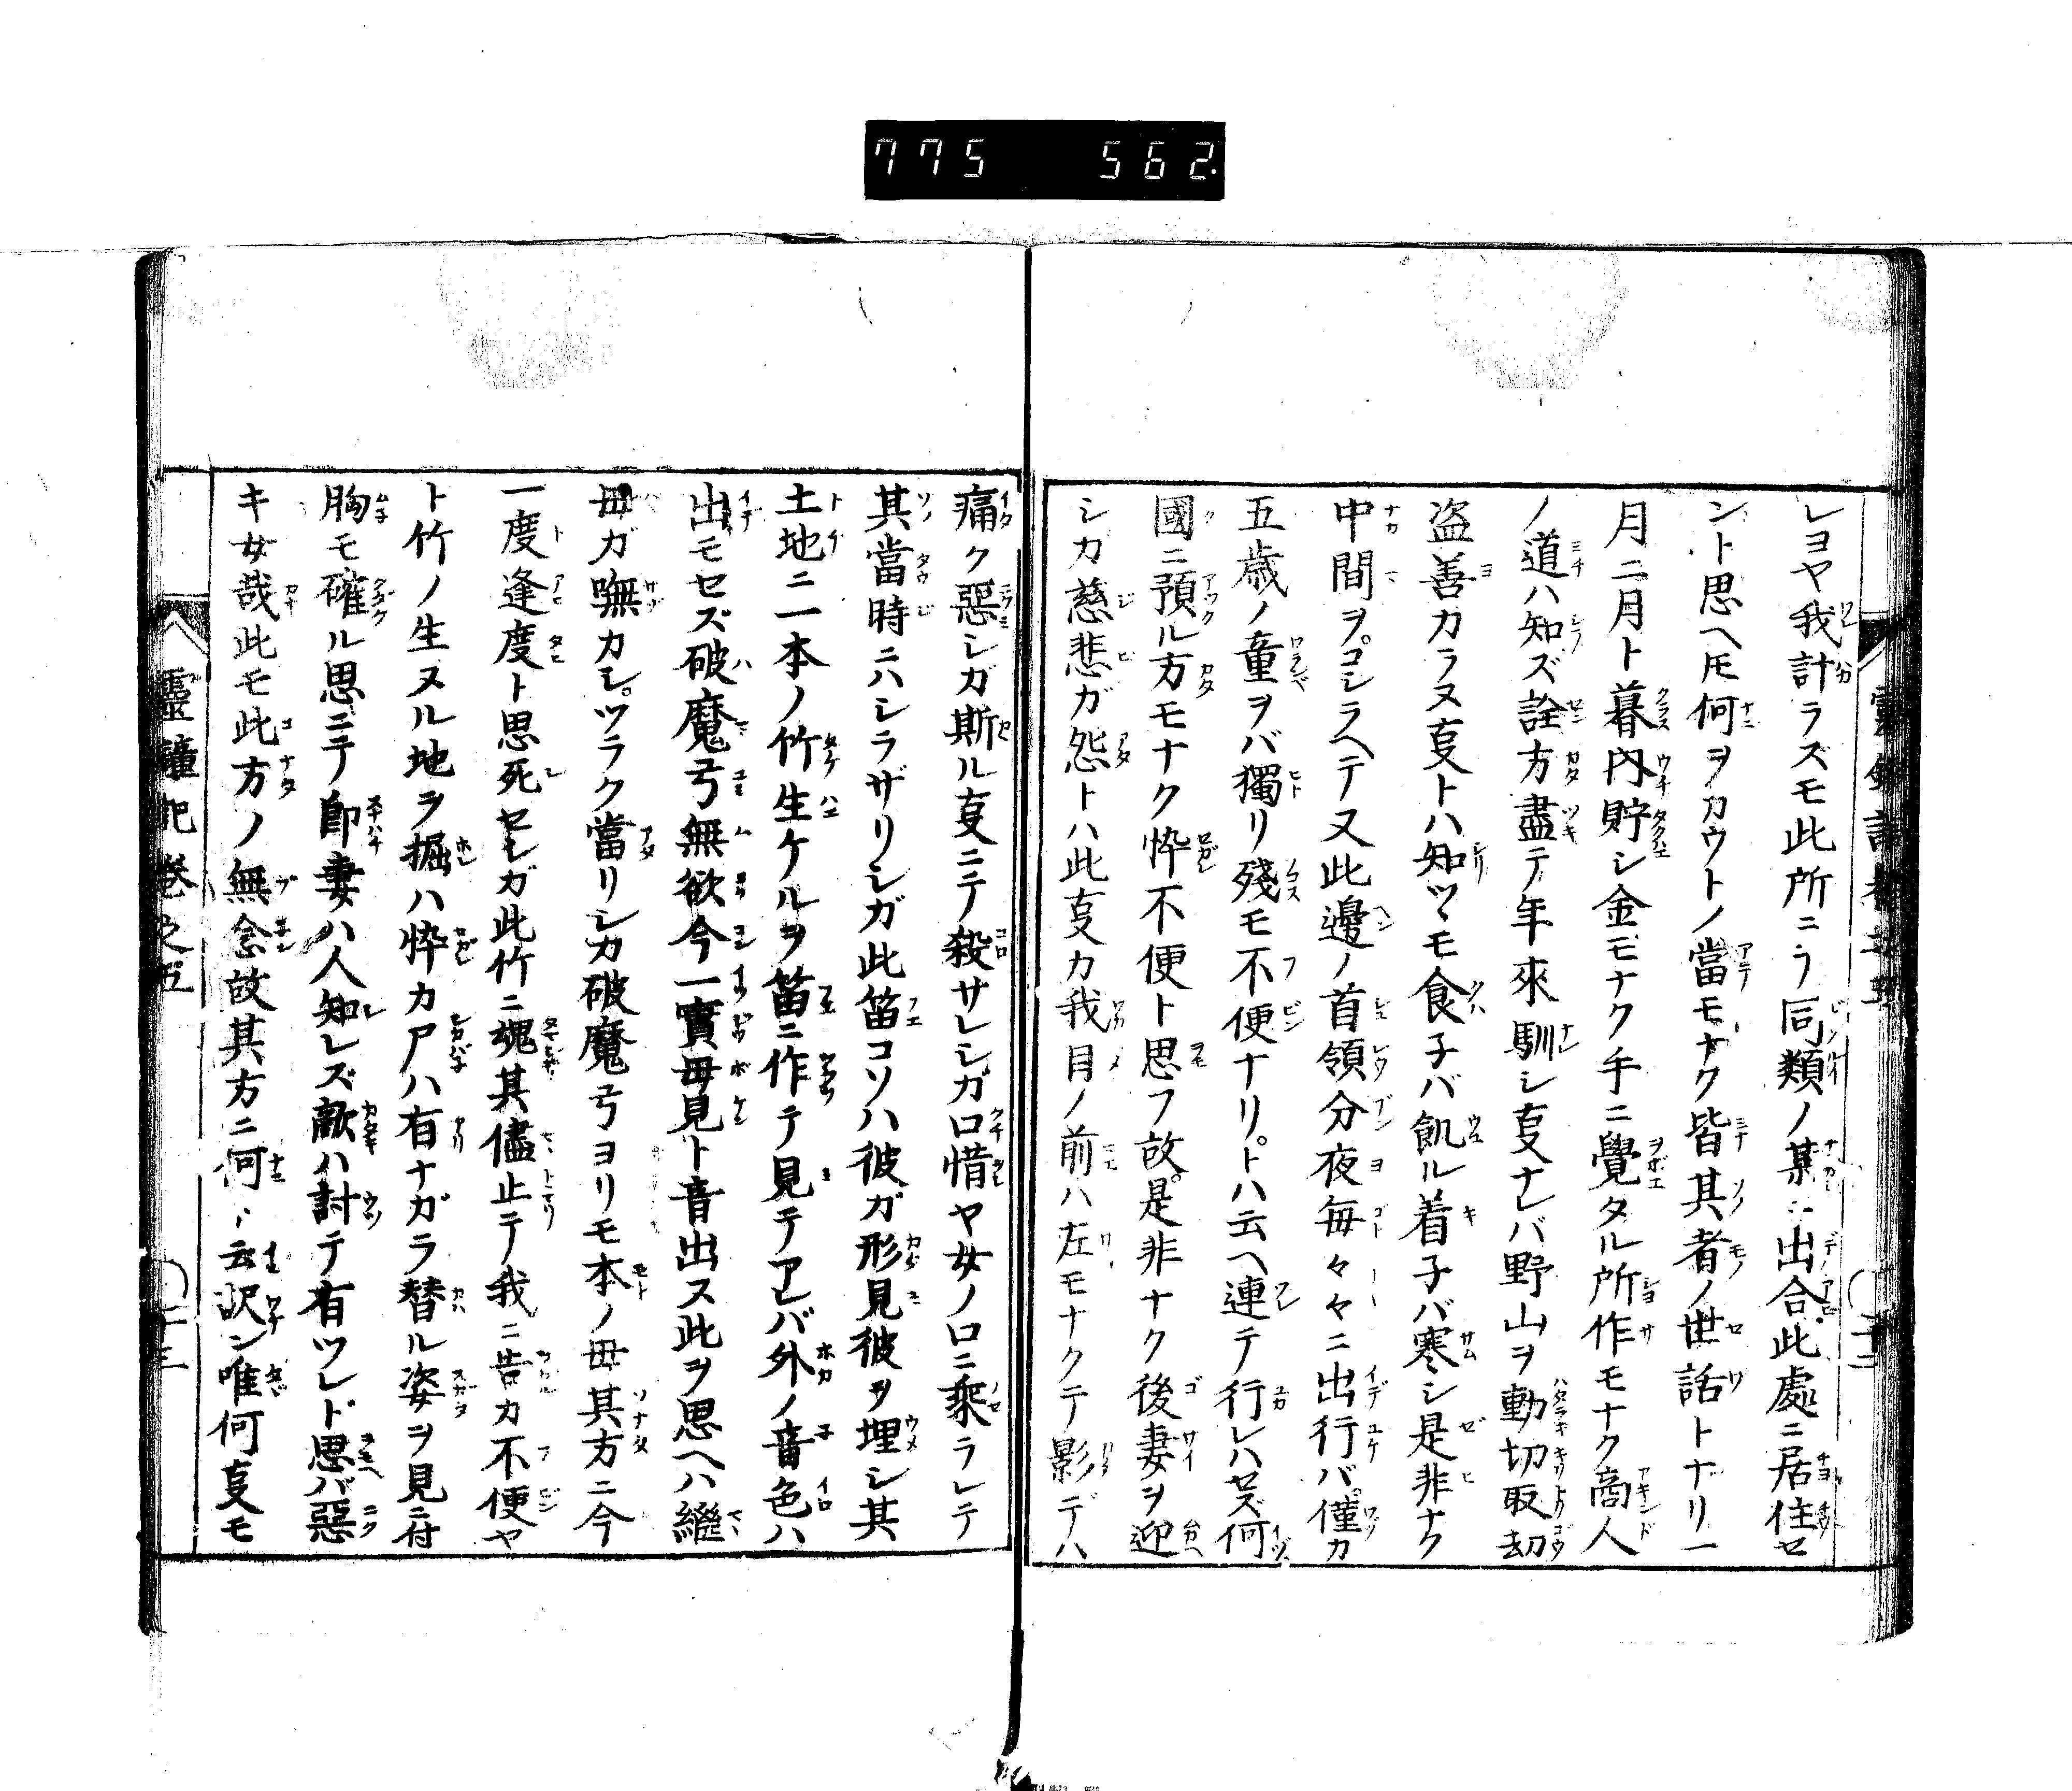 775 562
レヨヤ我計ラズモ此所ニテ同類ノ某ニ出合此處ニ居住セ
ント思ヘ𪜈何ヲカウトノ當モナク皆其者ノ世話トナリ一
月二月ト暮内貯シ金モナク手ニ覺タル所作モナク商人
ノ道ハ知ズ詮方盡テ年來馴シ叓ナレバ野山ヲ動切取刧
盗善カラヌ叓トハ知ツヽモ食子バ飢ル着子バ寒シ是非ナク
中間ヲコシラヘテ又此邊ノ首領分夜毎々々ニ出行バ僅カ
五歳ノ童ヲバ獨リ殘モ不便ナリトハ云ヘ連テ行レハセズ何
國ニ預ル方モナク忰不便ト思フ故是非ナク後妻ヲ迎
シカ慈悲ガ怨トハ此叓カ我目ノ前ハ左モナクテ影デハ
痛ク惡シガ斯ル叓ニテ殺サレシガ口惜ヤ女ノ口ニ乘ラレテ
其當時ニハシラザリシガ此笛コソハ彼ガ形見彼ヲ埋シ其
土地ニ一本ノ竹生ケルヲ笛ニ作テ見テアレバ外ノ音色ハ
出モセズ破魔弓無欲今一實母見ト音出ス此ヲ思ヘハ繼
母ガ嘸カシツラク當リシカ破魔弓ヨリモ本ノ母其方ニ今
一度逢度ト思死セシガ此竹ニ魂其儘止テ我ニ告カ不便ヤ
ト竹ノ生ヌル地ヲ掘ハ忰カ尸ハ有ナガラ替ル姿ヲ見ニ付
胸モ確ル思ニテ即妻ハ人知レズ敵ハ討テ有ツレド思バ惡
キ女哉此モ此方ノ無念故其方ニ何ト云訳ン唯何叓モ
靈鐘記巻之五
十三